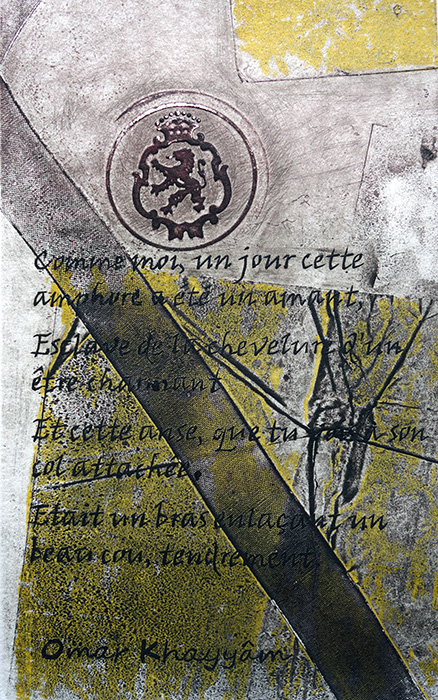 Comme moi, un jour cette
amphore a été un amant,
Esclave de la chevelure d'un
être charmant
Et cette anse, que tu vois à son
col attachée.
Etait un bras enlaçant un
beau cou, tendrement.
Omar Khayyâm